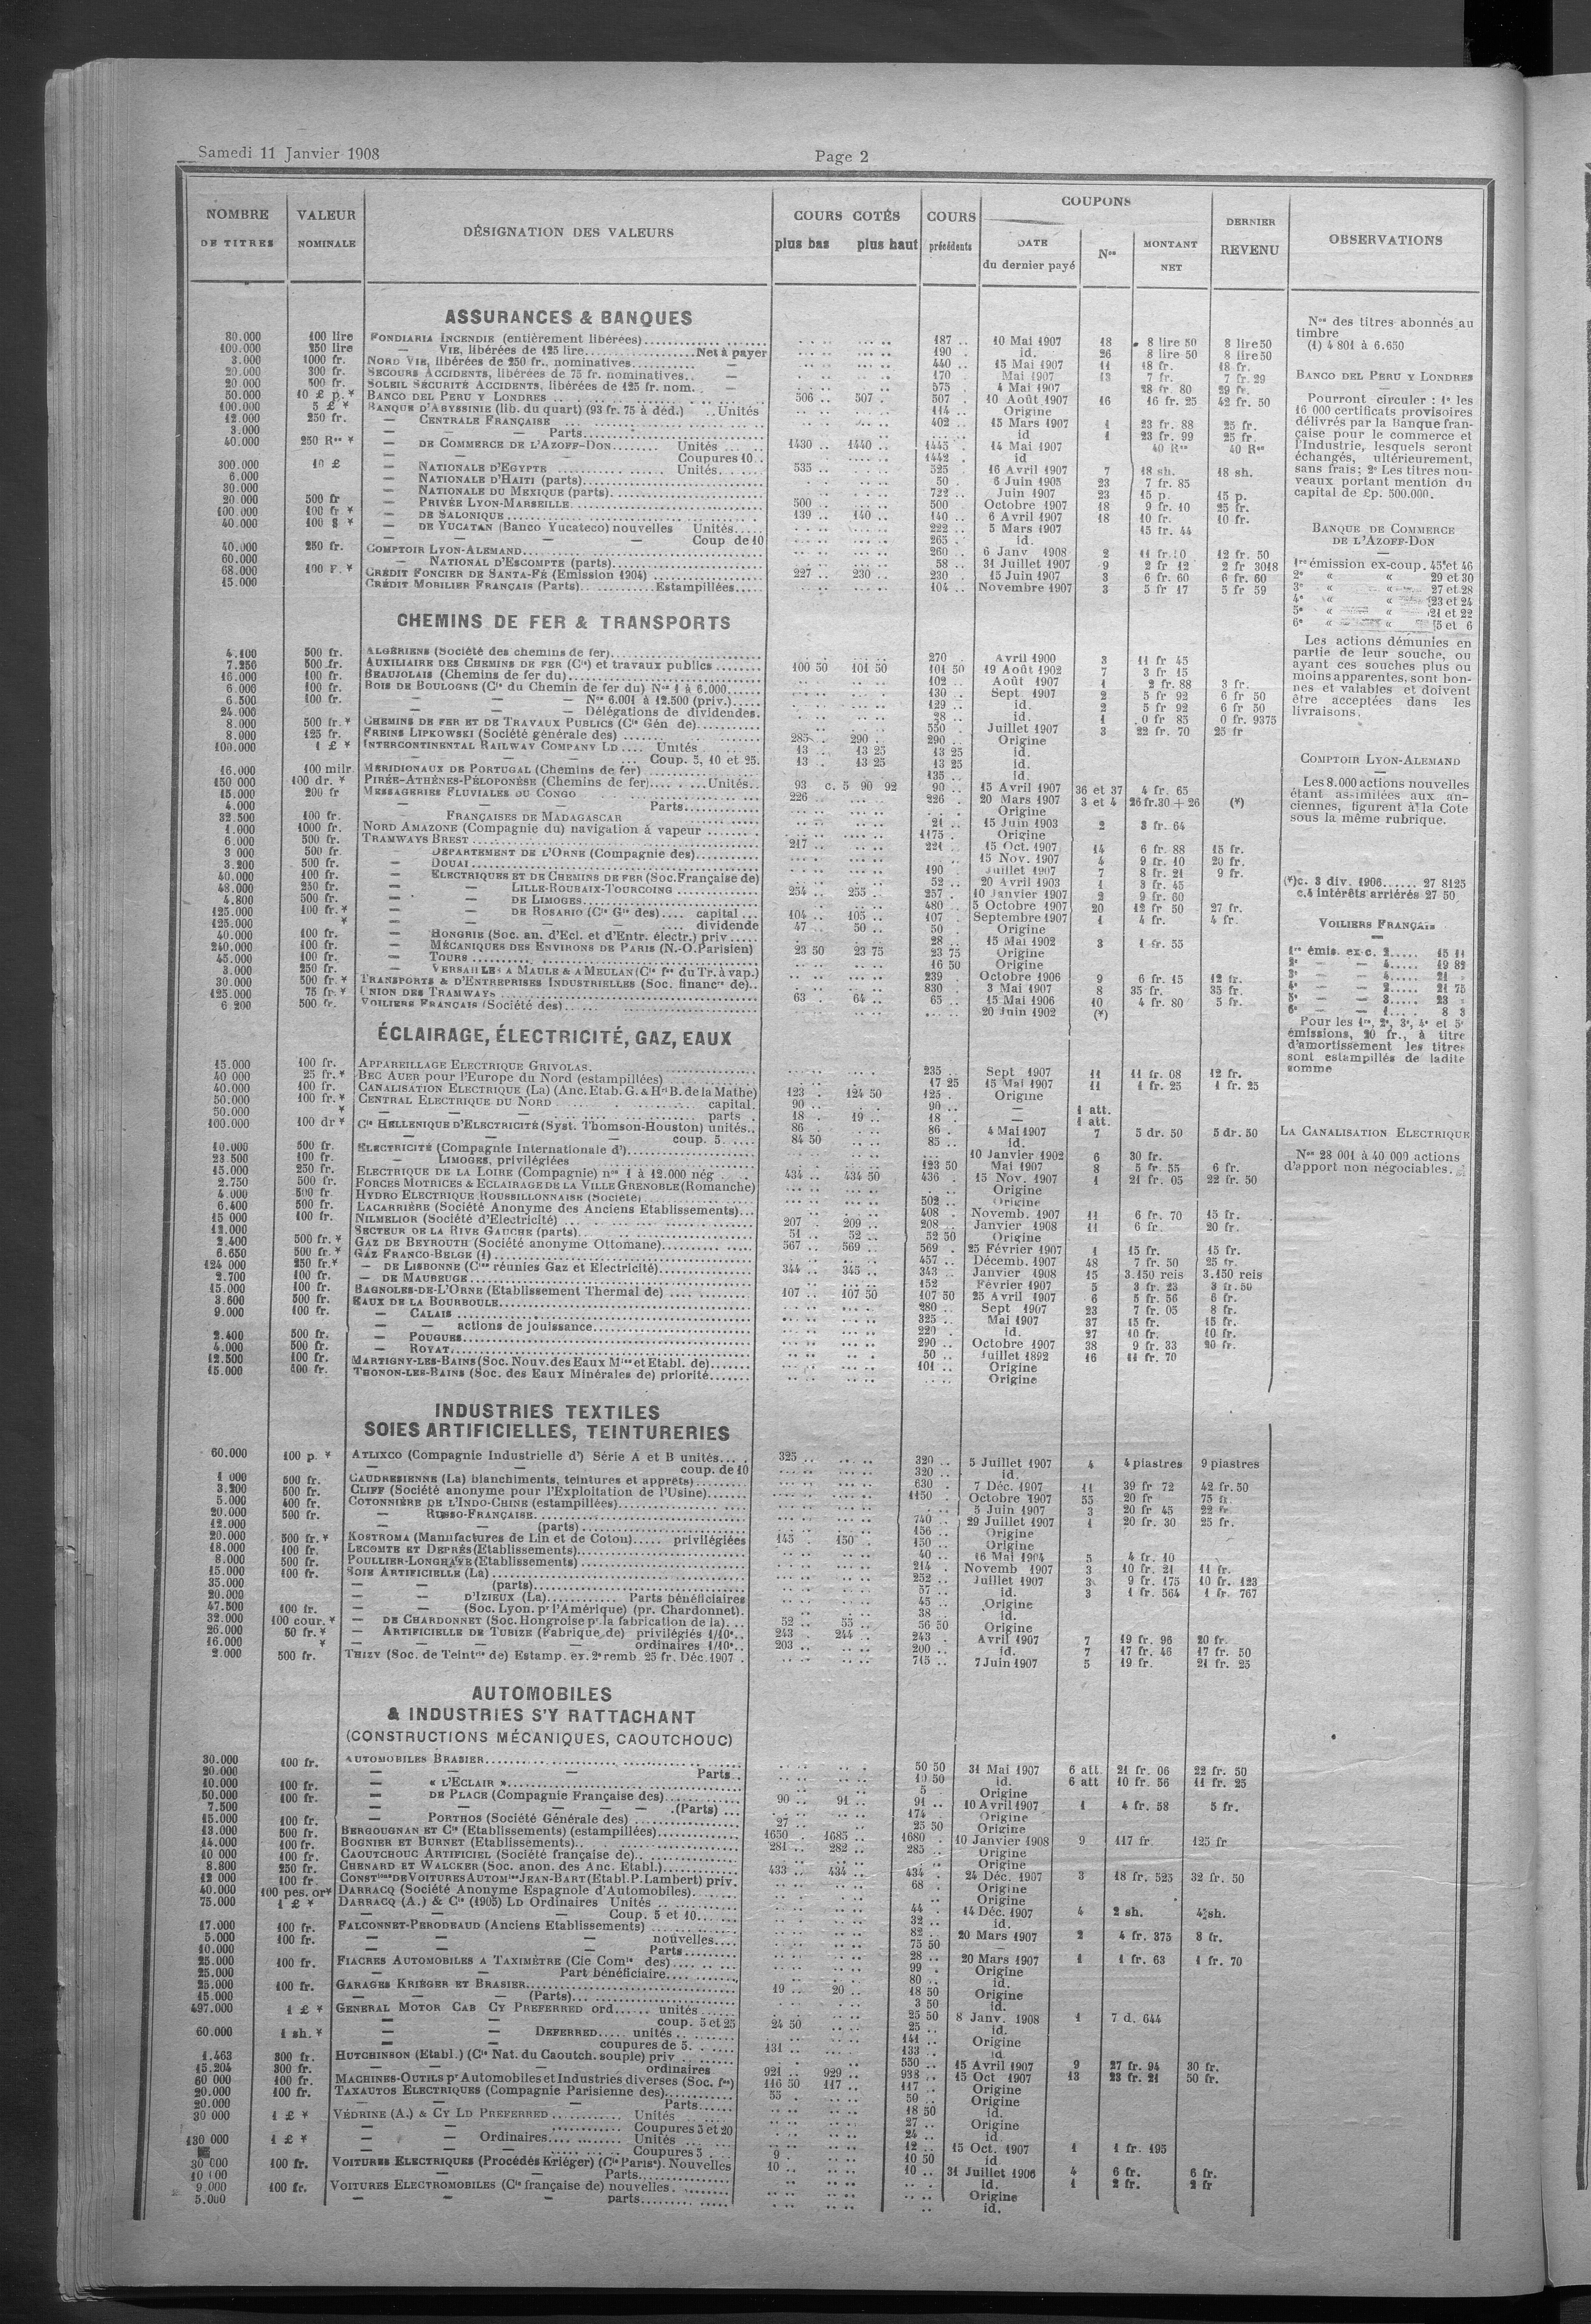 Samedi 11 Janvier 1908
Page 2
NOMBRE DE TITRES
VALEUR NOMINALE
DÉSIGNATION DES VALEURS
COURS COTÉS
plus bas plus haut
COURS précédents
COUPONS
DATE du dernier payé
Nos
MONTANT NET
DERNIER REVENU
OBSERVATIONS
ASSURANCES & BANQUES
80.000 100 lire FONDIARIA INCENDIE (entièrement libérées) 187 .. 10 Mai 1907 18 8 lire 50 8 lire 50
100.000 250 lire — VIE, libérées de 125 lire Net à payer 190 .. id. 26 8 lire 50 8 lire 50
3.000 1000 fr. NORD VIE, libérées de 250 fr., nominatives — 440 .. 15 Mai 1907 11 18 fr. 18 fr.
20.000 300 fr. SECOURS ACCIDENTS, libérées de 75 fr. nominatives — 170 .. Mai 1907 13 7 fr. 7 fr. 29
20.000 500 fr. SOLEIL SÉCURITÉ ACCIDENTS, libérées de 125 fr. nom. — 575 .. 4 Mai 1907 28 fr. 80 29 fr.
50.000 10 £ p. * BANCO DEL PERU Y LONDRES 506 .. 507 . 507 .. 10 Août 1907 16 16 fr. 25 42 fr. 50
100.000 5 £ * BANQUE D'ABYSSINIE (lib. du quart) (93 fr. 75 à déd.) Unités 114 .. Origine
12.000 250 fr. — CENTRALE FRANÇAISE 402 .. 15 Mars 1907 1 23 fr. 88 25 fr.
3.000 — — Parts id 1 23 fr. 99 25 fr.
40.000 250 Rs * — DE COMMERCE DE L'AZOFF-DON Unités 1430 .. 1440 .. 1445 . 14 Mai 1907 40 Rs 40 Rs
Coupures 10 1442 . id
300.000 10 £ — NATIONALE D'EGYPTE Unités 535 .. 525 16 Avril 1907 7 18 sh. 18 sh.
6.000 — NATIONALE D'HAITI (parts) 50 . 6 Juin 1905 23 7 fr. 85
30.000 — NATIONALE DU MEXIQUE (parts) 722 .. Juin 1907 23 15 p. 15 p.
20 000 500 fr — PRIVÉE LYON-MARSEILLE 500 . 500 Octobre 1907 18 9 fr. 10 25 fr.
100 000 100 fr * — DE SALONIQUE 139 .. 140 .. 140 .. 6 Avril 1907 18 10 fr. 10 fr.
40.000 100 $ * — DE YUCATAN (Banco Yucateco) nouvelles Unités 222 .. 5 Mars 1907 15 fr. 44
— — — Coup de 10 265 . id.
40.000 250 fr. COMPTOIR LYON-ALEMAND 260 .. 6 Janv 1908 2 11 fr. 10 12 fr. 50
60.000 — NATIONAL D'ESCOMPTE (parts) 58 .. 31 Juillet 1907 9 2 fr 12 2 fr 3018
68.000 100 F. * CRÉDIT FONCIER DE SANTA-FÉ (Emission 1904) 227 .. 230 .. 230 15 Juin 1907 3 6 fr. 60 6 fr. 60
15.000 CRÉDIT MOBILIER FRANÇAIS (Parts) Estampillées 104 .. Novembre 1907 3 5 fr 17 5 fr 59
CHEMINS DE FER & TRANSPORTS
4.100 500 fr. ALGÉRIENS (Société des chemins de fer) 270 . Avril 1900 3 11 fr 45
7.250 500 fr. AUXILIAIRE DES CHEMINS DE FER (Cie) et travaux publics 100 50 101 50 101 50 19 Août 1902 7 3 fr 15
16.000 100 fr. BEAUJOLAIS (Chemins de fer du) 102 .. Août 1907 1 2 fr. 88 3 fr.
6.000 100 fr. BOIS DE BOULOGNE (Cie du Chemin de fer du) Nos 1 à 6.000 130 .. Sept 1907 2 5 fr 92 6 fr 50
6.500 100 fr. — — — Nos 6.001 à 12.500 (priv.) 129 .. id. 2 5 fr 92 6 fr 50
24.000 — — — Délégations de dividendes. 28 .. id. 1 0 fr 85 0 fr. 9375
8.000 500 fr. * CHEMINS DE FER ET DE TRAVAUX PUBLICS (Cie Gén de) 550 . Juillet 1907 3 22 fr. 70 25 fr
8.000 125 fr. FREINS LIPKOWSKI (Société générale des) 285 . 290 . 290 .. Origine
100.000 1 £ * INTERCONTINENTAL RAILWAY COMPANY LD Unités 13 . 13 25 13 25 id.
— — — Coup. 5, 10 et 25. 13 . 13 25 13 25 id.
16.000 100 milr. MÉRIDIONAUX DE PORTUGAL (Chemins de fer) 135 .. id.
150 000 100 dr. * PIRÉE-ATHÈNES-PÉLOPONÈSE (Chemins de fer) Unités 93 c. 5 90 92 90 .. 15 Avril 1907 36 et 37 4 fr. 65
15.000 200 fr MESSAGERIES FLUVIALES DU CONGO 226 .. 226 . 20 Mars 1907 3 et 4 26 fr.30 + 26 (*)
4.000 — — — Parts Origine
32.500 100 fr. — FRANÇAISES DE MADAGASCAR 21 .. 15 Juin 1903 2 3 fr. 64
1.000 1000 fr. NORD AMAZONE (Compagnie du) navigation à vapeur 1175 . Origine
6.000 500 fr. TRAMWAYS BREST 217 .. 221 .. 15 Oct. 1907 14 6 fr. 88 15 fr.
3 000 500 fr. — DÉPARTEMENT DE L'ORNE (Compagnie des) 15 Nov. 1907 4 9 fr. 10 20 fr.
3.200 500 fr. — DOUAI 190 . Juillet 1907 7 8 fr. 21 9 fr.
40.000 100 fr. — ELECTRIQUES ET DE CHEMINS DE FER (Soc. Française de) 52 .. 20 Avril 1903 1 3 fr. 45
48.000 250 fr. — — LILLE-ROUBAIX-TOURCOING 254 .. 255 .. 257 .. 10 Janvier 1907 2 9 fr. 60
4.800 500 fr. — — DE LIMOGES 480 . 5 Octobre 1907 20 12 fr 50 27 fr.
125.000 100 fr. * — — DE ROSARIO (Cie Gle des) capital 104 .. 105 .. 107 . Septembre 1907 1 4 fr. 4 fr.
125.000 * — — — dividende 47 . 50 .. 50 . Origine
40.000 100 fr. — HONGRIE (Soc. an. d'Ecl. et d'Entr. électr.) priv 28 .. 15 Mai 1902 3 1 fr. 55
240.000 100 fr. — MÉCANIQUES DES ENVIRONS DE PARIS (N.-O. Parisien) 23 50 23 75 23 75 Origine
45.000 100 fr. — TOURS 16 50 Origine
3.000 250 fr. — VERSAILLES A MAULE & A MEULAN (Cie fse du Tr. à vap.) 239 . Octobre 1906 9 6 fr. 15 12 fr.
30.000 500 fr. * TRANSPORTS & D'ENTREPRISES INDUSTRIELLES (Soc. financre de) 830 . 3 Mai 1907 8 35 fr. 35 fr.
125.000 75 fr. * UNION DES TRAMWAYS 63 . 64 .. 65 .. 15 Mai 1906 10 4 fr. 80 5 fr.
6 200 500 fr. VOILIERS FRANÇAIS (Société des) 20 Juin 1902 (*)
ÉCLAIRAGE, ÉLECTRICITÉ, GAZ, EAUX
15.000 100 fr. APPAREILLAGE ELECTRIQUE GRIVOLAS 235 .. Sept 1907 11 11 fr. 08 12 fr.
40 000 25 fr. * BEC AUER pour l'Europe du Nord (estampillées) 17 25 15 Mai 1907 11 1 fr. 25 1 fr. 25
40.000 100 fr. CANALISATION ELECTRIQUE (La) (Anc. Etab. G. & Hri B. de la Mathe) 123 . 124 50 125 . Origine
50.000 100 fr. * CENTRAL ELECTRIQUE DU NORD capital. 90 .. 90 .. — 1 att.
50.000 * — — — parts 18 . 19 .. 18 . — 1 att.
100.000 100 dr * Cie HELLENIQUE D'ELECTRICITÉ (Syst. Thomson-Houston) unités 86 . 86 . 4 Mai 1907 7 5 dr. 50 5 dr. 50
— — — coup. 5 84 50 85 .. id.
10.000 500 fr. ELECTRICITÉ (Compagnie Internationale d') 10 Janvier 1902 6 30 fr.
23 500 100 fr. — LIMOGES, privilégiées 123 50 Mai 1907 8 5 fr. 55 6 fr.
15.000 250 fr. ELECTRIQUE DE LA LOIRE (Compagnie) nos 1 à 12.000 nég 434 .. 434 50 436 . 15 Nov. 1907 1 21 fr. 05 22 fr. 50
2.750 500 fr. FORCES MOTRICES & ECLAIRAGE DE LA VILLE GRENOBLE (Romanche) Origine
4.000 500 fr HYDRO ELECTRIQUE ROUSSILLONNAISE (Société) 502 .. Origine
6.400 500 fr. LACARRIÈRE (Société Anonyme des Anciens Etablissements) 408 . Novemb. 1907 11 6 fr. 70 15 fr.
15 000 100 fr. NILMELIOR (Société d'Electricité) 207 . 209 .. 208 .. Janvier 1908 11 6 fr. 20 fr.
12.000 SECTEUR DE LA RIVE GAUCHE (parts) 51 .. 52 .. 52 50 Origine
2.400 500 fr. * GAZ DE BEYROUTH (Société anonyme Ottomane) 567 .. 569 .. 569 . 25 Février 1907 1 15 fr. 15 fr.
6.650 500 fr. * GAZ FRANCO-BELGE (1) 457 .. Décemb. 1907 48 7 fr. 50 25 fr.
124 000 250 fr. * — DE LISBONNE (Cies réunies Gaz et Electricité) 344 .. 345 .. 343 .. Janvier 1908 15 3.150 reis 3.150 reis
2.700 100 fr. — DE MAUBEUGE 152 Février 1907 5 3 fr. 23 3 fr. 50
15.000 100 fr. BAGNOLES-DE-L'ORNE (Etablissement Thermal de) 107 .. 107 50 107 50 25 Avril 1907 6 5 fr. 56 6 fr.
3.600 500 fr. EAUX DE LA BOURBOULE 280 .. Sept 1907 23 7 fr. 05 8 fr.
9.000 100 fr. — CALAIS 325 .. Mai 1907 37 15 fr. 15 fr.
— — actions de jouissance 220 . id. 27 10 fr. 10 fr.
2.400 500 fr. — POUGUES 290 . Octobre 1907 38 9 fr. 33 20 fr.
4.000 500 fr. — ROYAT 50 . Juillet 1892 16 11 fr. 70
12.500 100 fr. MARTIGNY-LES-BAINS (Soc. Nouv. des Eaux Mles et Etabl. de) 101 .. Origine
15.000 100 fr. THONON-LES-BAINS (Soc. des Eaux Minérales de) priorité Origine
INDUSTRIES TEXTILES
SOIES ARTIFICIELLES, TEINTURERIES
60.000 100 p. * ATLIXCO (Compagnie Industrielle d') Série A et B unités 325 .. 320 .. 5 Juillet 1907 4 4 piastres 9 piastres
— coup. de 10 320 .. id.
1 000 500 fr. CAUDRESIENNE (La) blanchiments, teintures et apprêts) 630 . 7 Déc. 1907 11 39 fr 72 42 fr. 50
3.200 500 fr. CLIFF (Société anonyme pour l'Exploitation de l'Usine) 1150 . Octobre 1907 55 20 fr 75 fr.
5.000 400 fr. COTONNIÈRE DE L'INDO-CHINE (estampillées) 5 Juin 1907 3 20 fr. 45 22 fr.
20.000 500 fr. — RUSSO-FRANÇAISE 740 . 29 Juillet 1907 1 20 fr. 30 25 fr.
12.000 — — (parts) 156 .. Origine
20.000 500 fr. * KOSTROMA (Manufactures de Lin et de Coton) privilégiées 145 . 150 . 150 . Origine
18.000 100 fr. LECOMTE ET DEPRÉS (Etablissements) 40 .. 16 Mai 1904 5 4 fr. 10
8.000 500 fr. POULLIER-LONGHAYE (Etablissements) 214 . Novemb 1907 3 10 fr. 21 11 fr.
15.000 100 fr. SOIE ARTIFICIELLE (La) 252 .. Juillet 1907 3 9 fr. 175 10 fr. 123
35.000 — — (parts) 57 .. id. 3 1 fr. 564 1 fr. 767
20.000 — D'IZIEUX (La) Parts bénéficiaires 45 .. Origine
47.500 100 fr. — (Soc. Lyon. pr l'Amérique) (pr. Chardonnet). 38 .. id.
32.000 100 cour. * — DE CHARDONNET (Soc. Hongroise pr la fabrication de la) 52 .. 55 .. 56 50 Origine
26.000 50 fr. * — ARTIFICIELLE DE TUBIZE (Fabrique de) privilégiés 1/10e 243 . 244 .. 243 . Avril 1907 7 19 fr. 96 20 fr.
16.000 * — — — ordinaires 1/10e 203 .. 200 .. id. 7 17 fr. 46 17 fr. 50
2.000 500 fr. THIZY (Soc. de Teintrie de) Estamp. ex. 2e remb 25 fr. Déc. 1907 715 .. 7 Juin 1907 5 19 fr. 21 fr. 25
AUTOMOBILES
& INDUSTRIES S'Y RATTACHANT
(CONSTRUCTIONS MÉCANIQUES, CAOUTCHOUC)
30.000 100 fr. AUTOMOBILES BRASIER 50 50 31 Mai 1907 6 att 21 fr. 06 22 fr. 50
20.000 — — Parts 10 50 id. 6 att 10 fr. 56 11 fr. 25
10.000 100 fr. — « L'ECLAIR » 5 . Origine
50.000 100 fr. — DE PLACE (Compagnie Française des) 90 .. 91 .. 91 .. 10 Avril 1907 1 4 fr. 58 5 fr.
7.500 — — — (Parts) 174 . Origine
15.000 100 fr. — PORTHOS (Société Générale des) 27 .. 25 50 Origine
13.000 500 fr. BERGOUGNAN ET Cie (Etablissements) (estampillées) 1650 . 1685 .. 1680 . 10 Janvier 1908 9 117 fr. 125 fr
14.000 100 fr. BOGNIER ET BURNET (Etablissements) 281 .. 282 .. 285 .. Origine
10 000 100 fr. CAOUTCHOUC ARTIFICIEL (Société française de) Origine
8.800 250 fr. CHENARD ET WALCKER (Soc. anon. des Anc. Etabl.) 433 .. 434 .. 434 . 24 Déc. 1907 3 18 fr. 525 32 fr. 50
12 000 100 fr. CONSTions DE VOITURES AUTOMles JEAN-BART (Etabl. P. Lambert) priv. 68 . Origine
40.000 100 pes. or * DARRACQ (Société Anonyme Espagnole d'Automobiles) Origine
75.000 1 £ * DARRACQ (A.) & Cie (1905) LD Ordinaires Unités 44 . 14 Déc. 1907 4 2 sh. 4 sh.
— — — Coup. 5 et 10 32 .. id.
17.000 100 fr. FALCONNET-PERODEAUD (Anciens Etablissements) 82 .. 20 Mars 1907 2 4 fr. 375 8 fr.
5.000 100 fr. — — — nouvelles 75 50 —
10.000 — — — Parts 28 .. 20 Mars 1907 1 1 fr. 63 1 fr. 70
25.000 100 fr. FIACRES AUTOMOBILES A TAXIMÈTRE (Cie Comle des) 99 . Origine
25.000 — Part bénéficiaire 80 .. id.
25.000 100 fr. GARAGES KRIÉGER ET BRASIER 19 .. 20 .. 18 50 Origine
15.000 — — — (Parts) 3 50 id.
497.000 1 £ * GENERAL MOTOR CAB CY PREFERRED ord unités 25 50 8 Janv. 1908 1 7 d. 644
— — coup. 5 et 25 24 50 25 .. id.
60.000 1 sh. * — — DEFERRED unités 141 .. Origine
— — coupures de 5 131 .. 133 .. id
1.463 300 fr. HUTCHINSON (Etabl.) (Cie Nat. du Caoutch. souple) priv 550 .. 15 Avril 1907 9 27 fr. 94 30 fr.
15.204 300 fr. — — — ordinaires 921 .. 929 .. 938 .. 15 Oct 1907 13 23 fr. 21 50 fr.
60 000 100 fr. MACHINES-OUTILS pr Automobiles et Industries diverses (Soc. fse) 116 50 117 .. 117 .. Origine
20.000 100 fr. TAXAUTOS ELECTRIQUES (Compagnie Parisienne des) 55 . 50 .. Origine
20.000 — — — Parts 18 50 id.
30 000 1 £ * VÉDRINE (A.) & CY LD PREFERRED Unités 27 .. Origine
Coupures 5 et 20 24 .. id.
130 000 1 £ * — — Ordinaires Unités 12 .. 15 Oct. 1907 1 1 fr. 195
— — — Coupures 5 9 . 10 50 id
30 000 100 fr. VOITURES ELECTRIQUES (Procédés Kriéger) (Cie Parise). Nouvelles 10 .. 10 .. 31 Juillet 1906 4 6 fr. 6 fr.
10 000 — — — Parts id. 1 2 fr. 2 fr
9.000 100 fr. VOITURES ELECTROMOBILES (Cie française de) nouvelles Origine
5.000 — — — parts id.
Nos des titres abonnés au
timbre
(1) 4 801 à 6.650
BANCO DEL PERU Y LONDRES
Pourront circuler : 1e les
16 000 certificats provisoires
délivrés par la Banque fran-
çaise pour le commerce et
l'Industrie, lesquels seront
échangés, ultérieurement,
sans frais; 2e Les titres nou-
veaux portant mention du
capital de £p. 500.000.
BANQUE DE COMMERCE
DE L'AZOFF-DON
1re émission ex-coup. 45 et 46
2e « « 29 et 30
3e « « 27 et 28
4e « « 23 et 24
5e « « 21 et 22
6e « « 5 et 6
Les actions démunies en
partie de leur souche, ou
ayant ces souches plus ou
moins apparentes, sont bon-
nes et valables et doivent
être acceptées dans les
livraisons.
COMPTOIR LYON-ALEMAND
Les 8.000 actions nouvelles
étant assimilées aux an-
ciennes, figurent à la Cote
sous la même rubrique.
(*) c. 3 div. 1906 27 8125
c.4 intérêts arriérés 27 50
VOILIERS FRANÇAIS
1re émis. ex-c. 2 15 11
2e — — 4 19 82
3e — — 4 21
4e — — 2 21 75
5e — — 3 23
6e — — 1 8 3
Pour les 1re, 2e, 3e, 4e et 5e
émissions, 20 fr., à titre
d'amortissement les titres
sont estampillés de ladite
somme
LA CANALISATION ELECTRIQUE
Nos 28 001 à 40 000 actions
d'apport non négociables.